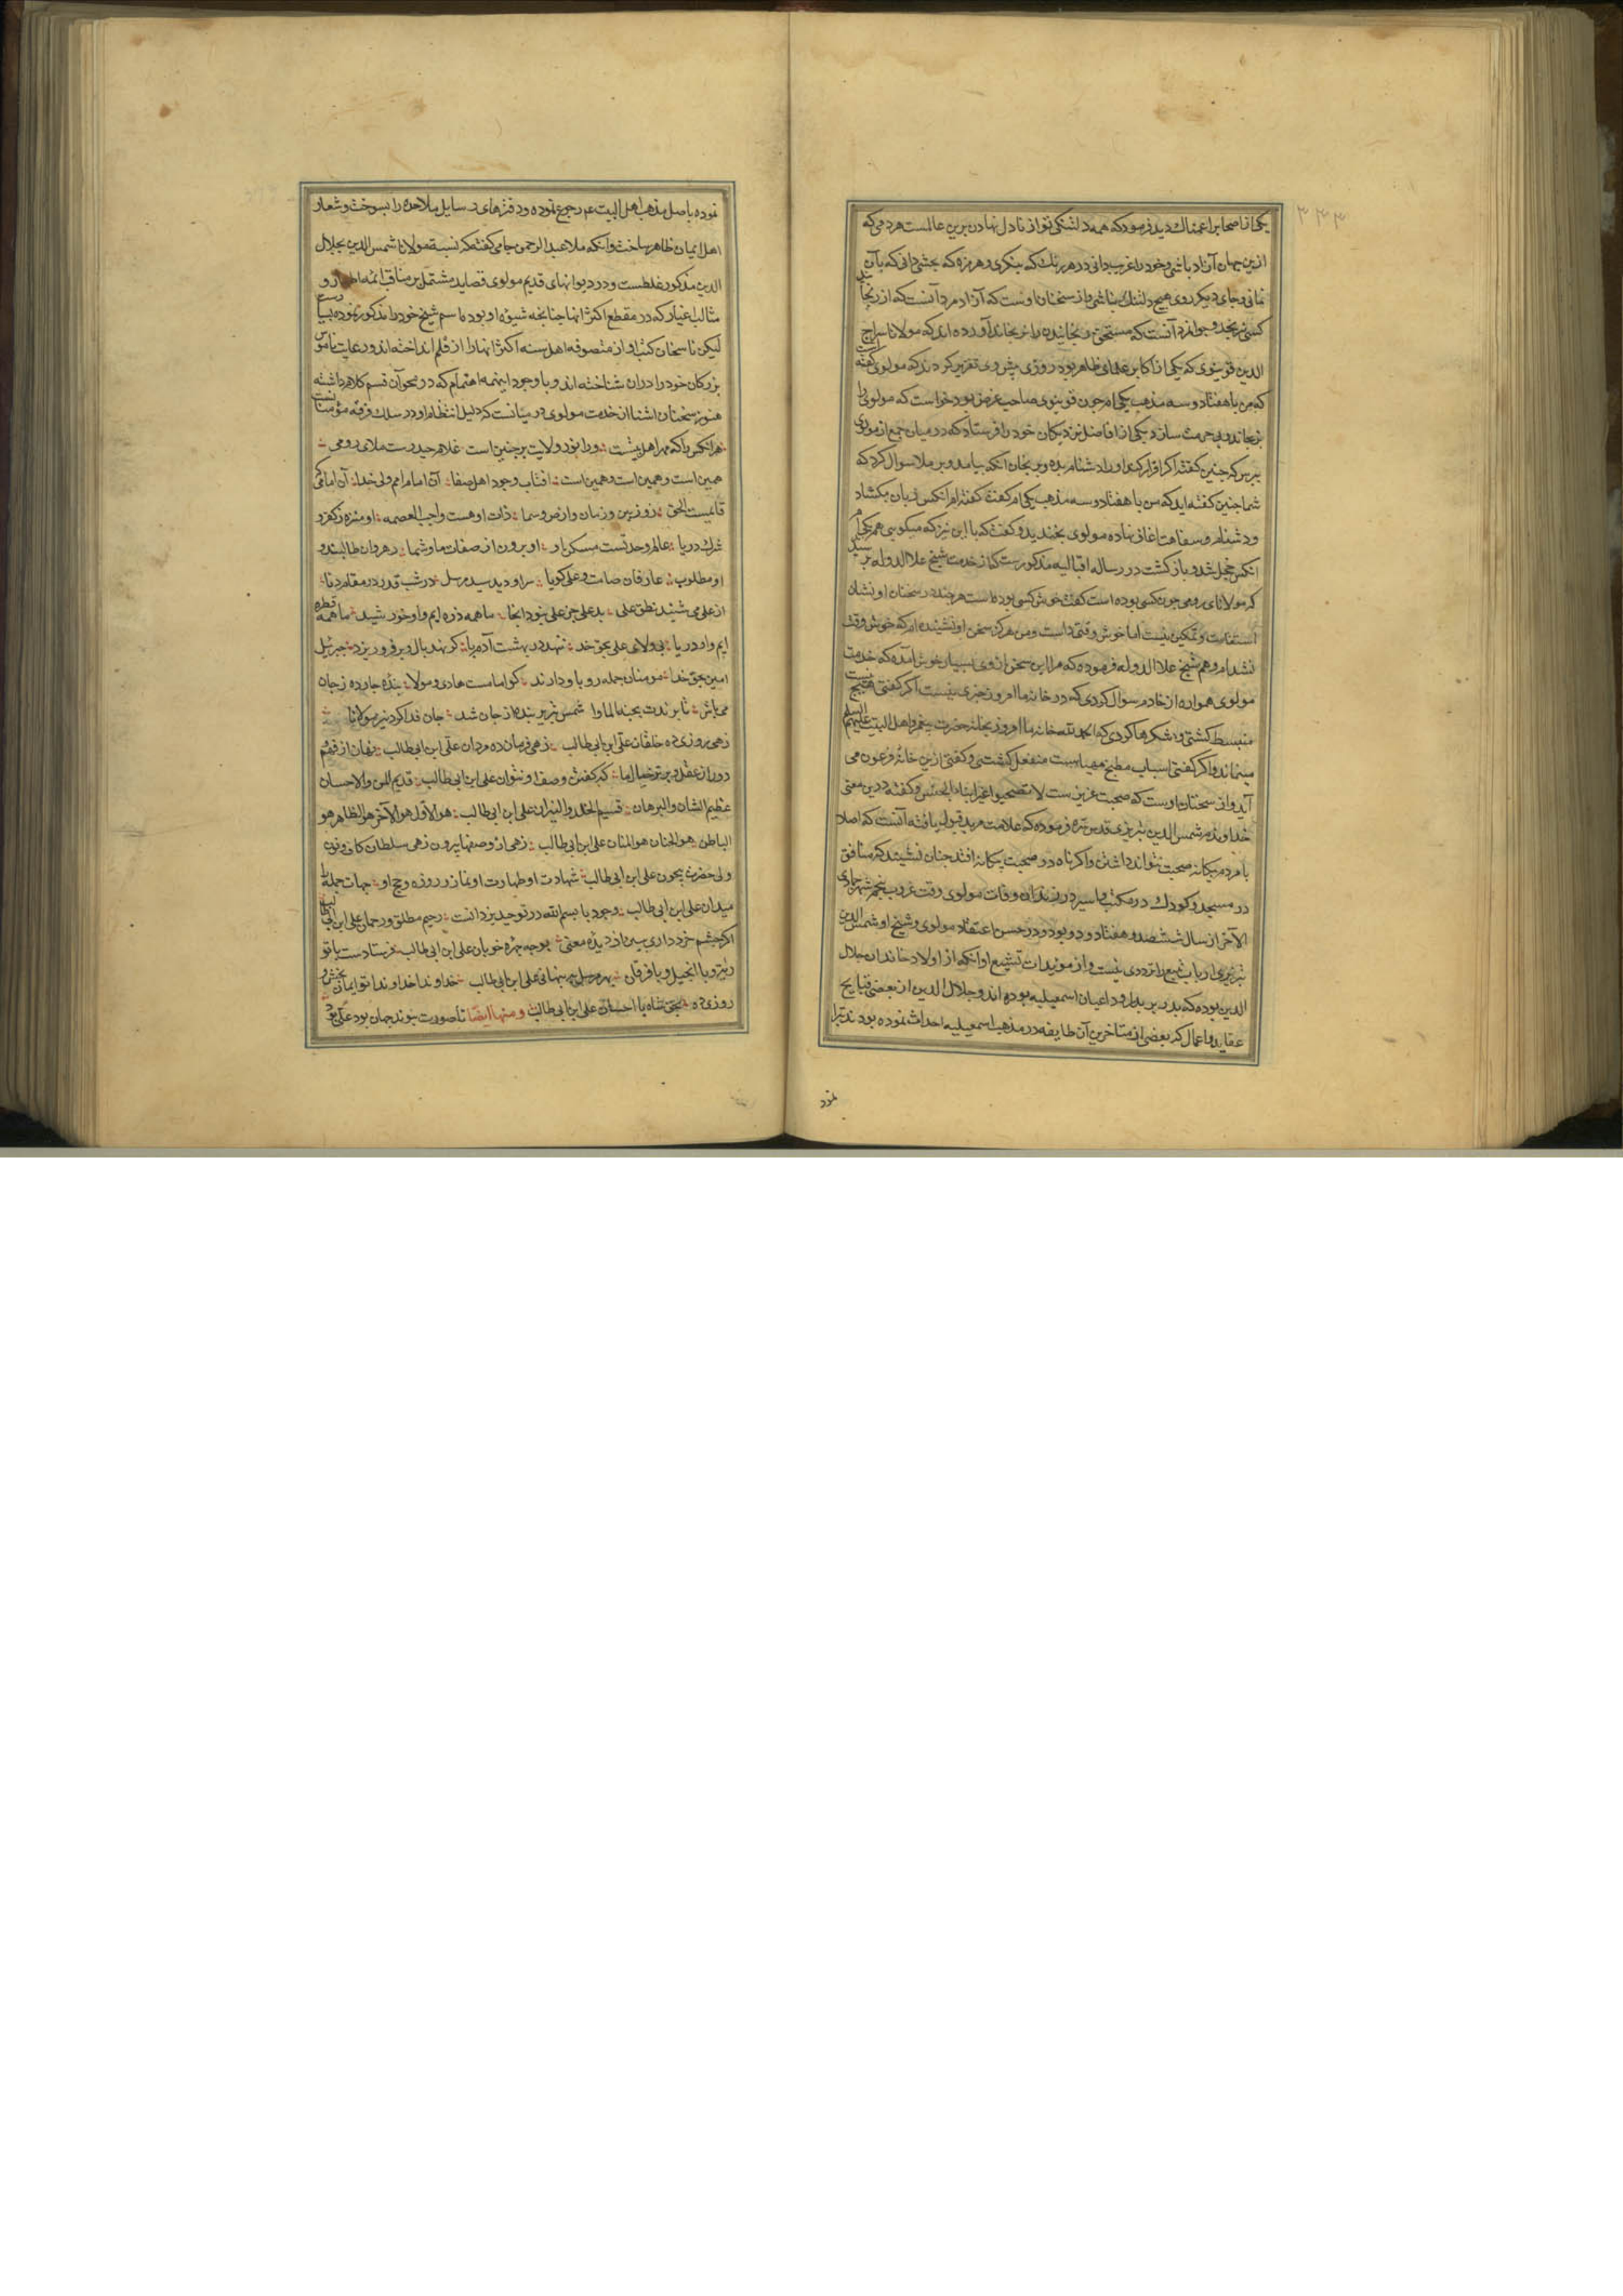 ۳۳۳
یکی از اصحاب را غمناک دید فرمود که همه دلتنکی تو از نادل نهادن برین عالمست هر دمی که
ازین جهان آزاد باشی و خود را غریب دانی و در هر رنک که بنکری و هر مزه که بچشی دانی که بآن
نمانی و جای دیکر روی هیچ دلتنک نباشی و از سخنان اوست که آزاد مرد آنست که از رنجانیدن
کسی نرنجد و جوانمرد آنست که مستحق رنجانیدن را نرنجاند آورده اند که مولانا سراج
الدین قونیوی که یکی از اکابر علمای ظاهر بود روزی پیش وی تقریر کردند که مولوی کفته است
که من با هفتاد و سه مذهب یکی ام چون قونیوی صاحب غرض بود خواست که مولوی را
برنجاند و بی حرمت سازد یکی از افاضل نزدیکان خود را فرستاد که در میان جمع از مولوی
بپرس که چنین کفته اکر اقرار کند او را دشنام بده و برنجان انکه بیامد و بر ملا سوال کرد که
شما چنین کفته اید که من با هفتاد و سه مذهب یکی ام کفت کفته ام انکس زبان بکشاد
و دشنام و سفاهت اغاز نهاد مولوی بخندید و کفت که با این نیز که میکویی هم یکی ام
انکس خجل شد و بازکشت در رساله اقبالیه مذکورست که از خدمت شیخ علا الدوله پرسید
که مولانای رومی چون کسی بوده است کفت خوش کسی بوده است هر چند در سخنان او نشان
استقامت و تمکین نیست اما خوش وقتی داشت و من هرکز سخن او نشنیده ام که خوش وقت
نشدام و هم شیخ علا الدوله فرموده که مرا این سخن از وی بسیار خوش آمده که خدمت
مولوی همواره از خادم سوال کردی که در خانه ما امروز چیزی هست اکر کفتی هیچ نیست
منبسط کشتی و شکرها کردی که الحمد لله خانه ما امروز بخانه حضرت پیغمبر و اهل البیت علیهم السلم
میماند و اکر کفتی اسباب مطبخ مهیاست منفعل کشتی و کفتی ازین خانه فرعون می
آید و از سخنان اوست که صحبت عزیز ست لا تصحبوا غیر ابناء الجنس و کفته در این معنی
خداوندم شمس الدین تبریزی قدس سره فرموده که علامت مرید قبول یافته آنست که اصلا
با مردم بیکانه صحبت نتواند داشتن و اکر ناکاه در صحبت بیکانه افتد چنان نشیند که منافق
در مسجد و کودک در مکتب و اسیر در زندان وفات مولوی وقت غروب پنجم شهر جمادی
الآخر از سال ششصد و هفتاد و دو بود و در حسن اعتقاد مولوی و شیخ او شمس الدین
تبریزی ارباب تتبع را ترددی نیست و از مویدات تشیع او انکه از اولاد خاندان جلال
الدین بوده که پدر بر پدر از داعیان اسمعیلیه بوده اند و جلال الدین از بعضی قبایح
عقاید و اعمال که بعضی از متاخرین آن طایفه در مذهب اسمعیلیه احداث نموده بودند تبرا
نموده باصل مذهب اهل البیت عم رجوع نموده و دفترهای رسایل ملاحده را بسوخت و شعار
اهل ایمان ظاهر ساخت و انکه ملا عبد الرحمن جامی کفته که نسبت مولانا شمس الدین بجلال
الدین مذکور غلطست و در دیوانهای قدیم مولوی قصاید مشتمل بر مناقب ائمه اطهار و
مثالب اغیار که در مقطع اکثر انها چنانچه شیوه او بود باسم شیخ خود را مذکور نموده بسیارست
لیکن ناسخان کتب او از متصوفه اهل سنه اکثر انها را از قلم انداخته اند و رعایت ناموس
بزرکان خود را دران شناخته اند و با وجود اینهمه اهتمام که در محو آن قسم کلام داشته
هنوز سخنان اشنا از خدمت مولوی در میانست که دلیل انتظام او در سلک فرقه مؤمنانست
هر انکس را که مهر اهل بیتست ورا نور ولایت بر جبین است غلام حیدرست ملای رومی
همین است و همین است و همین است افتاب وجود اهل صفا آن امام امم ولی خدا آن امامی که
قایمست الحق زو زمین و زمان و ارض و سما ذات او هست واجب العصمه او منزه ز کفر و
شرک و ریا عالم وحدتست مسکن او او برون از صفات ما و شما رهروان طالبند و
او مطلوب عارفان صامت و علی کویا سر او دید سید مرسل در شب قدر در مقام دنا
از علی می شنید نطق علی بد علی جز علی نبود انجا ما همه ذره ایم و او خورشید ما همه قطره
ایم و او دریا بی ولای علی بحق خدا ننهد در بهشت آدم پا کر نهد بال و پر فرو ریزد جبرئیل
امین بحق خدا مومنان جمله رو باو دارند کو امامست هادی و مولا بنده جاردہ ز جان
می باش تا برندت بجنه الماوا شمس تبریز بنده از جان شد جان فدا کرد نیز مولانا
زهی روزی ده خلقان علی ابن ابی طالب زهی فرمان ده مردان علی ابن ابی طالب نهان از فهم
دور از عقل و برتر خیال ما که کفتن وصف او نتوان علی ابن ابی طالب قدیم المن و الاحسان
عظیم الشان و البرهان قسیم الخلد و النیران علی ابن ابی طالب هو الاول هو الآخر هو الظاهر هو
الباطن هو الحنان هو المنان علی ابن ابی طالب زهی از وصفها بیرون زهی سلطان کاف و نون
ولی حضرت بیچون علی ابن ابی طالب شهادت او طهارت او نماز و روزه و حج او جهات جمله را
میدان علی ابن ابی طالب وجود با بسم الله در توحید یزدانت رحیم مطلق و رحمان علی ابن ابی طالب
اکر چشم خرد داری ببین از دیده معنی بوجه جمره خوبان علی ابن ابی طالب فرستادست با تو
ریة و با انجیل و با فرقان بهر مرسل پنهانی علی ابن ابی طالب خداوندا خداوندا تو ایمان بخش و
روزی ده بحق شاه با احسان علی ابن ابی طالب و منها ایضا تا صورت پیوند جهان بود علی بود